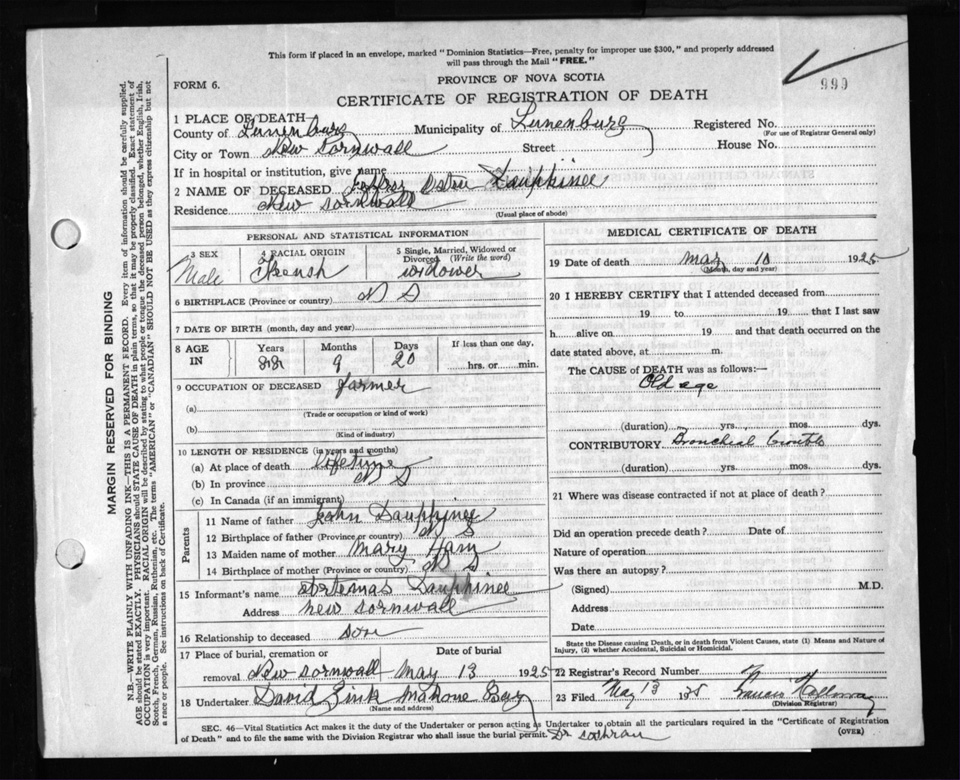 This form if placed in an envelope, marked "Dominion Statistics—Free, penalty for improper use $300," and properly addressed
will pass through the Mail "FREE."
999
FORM 6.
PROVINCE OF NOVA SCOTIA
CERTIFICATE OF REGISTRATION OF DEATH
MARGIN RESERVED FOR BINDING
N.B.—WRITE PLAINLY WITH UNFADING INK—THIS IS A PERMANENT RECORD. Every item of information should be carefully supplied.
AGE should be stated EXACTLY. PHYSICIANS should STATE CAUSE OF DEATH in plain terms, so that it may be properly classified. Exact statement of
OCCUPATION is very important. RACIAL ORIGIN will be described by stating to what people or tongue the deceased person belonged, whether English, Irish,
Scotch, French, German, Russian, Ruthenian, etc. The terms "AMERICAN" or "CANADIAN" SHOULD NOT BE USED as they express citizenship but not
a race or people. See instructions on back of Certificate.
1 PLACE OF DEATH
County of Lunenburg Municipality of Lunenburg Registered No.
(For use of Registrar General only)
City or Town New Cornwall Street House No.
If in hospital or institution, give name
2 NAME OF DECEASED Dauphinee
Residence New Cornwall
(Usual place of abode)
PERSONAL AND STATISTICAL INFORMATION
3 SEX Male
4 RACIAL ORIGIN French
5 Single, Married, Widowed or Divorced (Write the word) widower
6 BIRTHPLACE (Province or country) N S
7 DATE OF BIRTH (month, day and year)
8 AGE IN Years 88 Months 9 Days 20 If less than one day, hrs. or min.
9 OCCUPATION OF DECEASED farmer
(a)
(Trade or occupation or kind of work)
(b)
(Kind of industry)
10 LENGTH OF RESIDENCE (in years and months)
(a) At place of death lifetime
(b) In province N S
(c) In Canada (if an immigrant)
Parents
11 Name of father John Dauphinee
12 Birthplace of father (Province or country) N S
13 Maiden name of mother Mary
14 Birthplace of mother (Province or country) N S
15 Informant's name Artemas Dauphinee
Address new Cornwall
16 Relationship to deceased son
17 Place of burial, cremation or Date of burial
removal New Cornwall May 13 1925
18 Undertaker David Zink Mahone Bay
(Name and address)
MEDICAL CERTIFICATE OF DEATH
19 Date of death May 10 1925
(Month, day and year)
20 I HEREBY CERTIFY that I attended deceased from
19 to 19 that I last saw
h alive on 19 and that death occurred on the
date stated above, at m.
The CAUSE of DEATH was as follows:—
Old age
(duration) yrs. mos. dys.
CONTRIBUTORY Bronchial trouble
(duration) yrs. mos. dys.
21 Where was disease contracted if not at place of death?
Did an operation precede death? Date of
Nature of operation
Was there an autopsy?
(Signed) M.D.
Address
Date
State the Disease causing Death, or in death from Violent Causes, state (1) Means and Nature of
Injury, (2) whether Accidental, Suicidal or Homicidal.
22 Registrar's Record Number
23 Filed May 13
(Division Registrar)
SEC. 46—Vital Statistics Act makes it the duty of the Undertaker or person acting as Undertaker to obtain all the particulars required in the "Certificate of Registration
of Death" and to file the same with the Division Registrar who shall issue the burial permit. Dr Cochran
(OVER)